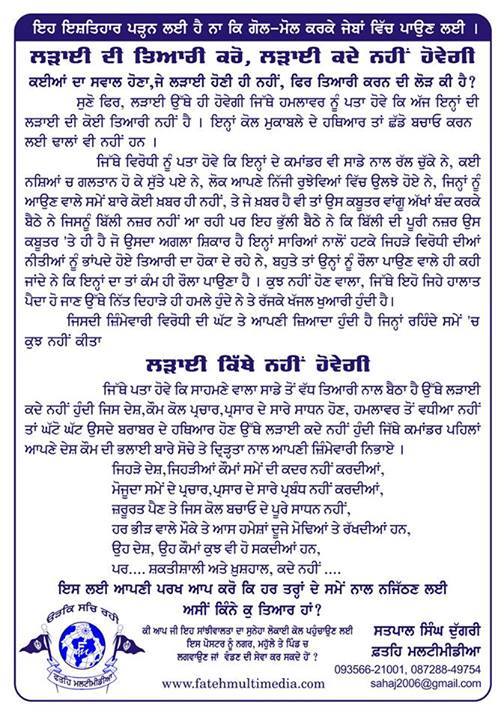 ਇਹ ਇਸ਼ਤਿਹਾਰ ਪੜ੍ਹਨ ਲਈ ਹੈ ਨਾ ਕਿ ਗੋਲ-ਮੋਲ ਕਰਕੇ ਜੇਬਾਂ ਵਿੱਚ ਪਾਉਣ ਲਈ ।
ਲੜਾਈ ਦੀ ਤਿਆਰੀ ਕਰੋ, ਲੜਾਈ ਕਦੇ ਨਹੀਂ ਹੋਵੇਗੀ
ਕਈਆਂ ਦਾ ਸਵਾਲ ਹੋਣਾ,ਜੇ ਲੜਾਈ ਹੋਣੀ ਹੀ ਨਹੀਂ, ਫਿਰ ਤਿਆਰੀ ਕਰਨ ਦੀ ਲੋੜ ਕੀ ਹੈ?
ਸੁਣੋ ਫਿਰ, ਲੜਾਈ ਉੱਥੇ ਹੀ ਹੋਵੇਗੀ ਜਿੱਥੇ ਹਮਲਾਵਰ ਨੂੰ ਪਤਾ ਹੋਵੇ ਕਿ ਅੱਜ ਇਨ੍ਹਾਂ ਦੀ
ਲੜਾਈ ਦੀ ਕੋਈ ਤਿਆਰੀ ਨਹੀਂ ਹੈ । ਇਨ੍ਹਾਂ ਕੋਲ ਮੁਕਾਬਲੇ ਦੇ ਹਥਿਆਰ ਤਾਂ ਛੱਡੋ ਬਚਾਓ ਕਰਨ
ਲਈ ਢਾਲਾਂ ਵੀ ਨਹੀਂ ਹਨ ।
ਜਿੱਥੇ ਵਿਰੋਧੀ ਨੂੰ ਪਤਾ ਹੋਵੇ ਕਿ ਇਨ੍ਹਾਂ ਦੇ ਕਮਾਂਡਰ ਵੀ ਸਾਡੇ ਨਾਲ ਰੱਲ ਚੁੱਕੇ ਨੇ, ਕਈ
ਨਸ਼ਿਆਂ ਚ ਗਲਤਾਨ ਹੋ ਕੇ ਸੁੱਤੇ ਪਏ ਨੇ, ਲੋਕ ਆਪਣੇ ਨਿੱਜੀ ਰੁਝੇਵਿਆਂ ਵਿੱਚ ਉਲਝੇ ਹੋਏ ਨੇ, ਜਿਨ੍ਹਾਂ ਨੂੰ
ਆਉਣ ਵਾਲੇ ਸਮੇਂ ਬਾਰੇ ਕੋਈ ਖ਼ਬਰ ਹੀ ਨਹੀਂ, ਤੇ ਜੇ ਖ਼ਬਰ ਹੈ ਵੀ ਤਾਂ ਉਸ ਕਬੂਤਰ ਵਾਂਗੂ ਅੱਖਾਂ ਬੰਦ ਕਰਕੇ
ਬੈਠੇ ਨੇ ਜਿਸਨੂੰ ਬਿੱਲੀ ਨਜ਼ਰ ਨਹੀਂ ਆ ਰਹੀ ਪਰ ਇਹ ਭੁੱਲੀ ਬੈਠੇ ਨੇ ਕਿ ਬਿੱਲੀ ਦੀ ਪੂਰੀ ਨਜ਼ਰ ਉਸ
ਕਬੂਤਰ 'ਤੇ ਹੀ ਹੈ ਜੋ ਉਸਦਾ ਅਗਲਾ ਸ਼ਿਕਾਰ ਹੈ ਇਨ੍ਹਾਂ ਸਾਰਿਆਂ ਨਾਲੋਂ ਹਟਕੇ ਜਿਹੜੇ ਵਿਰੋਧੀ ਦੀਆਂ
ਨੀਤੀਆਂ ਨੂੰ ਭਾਂਪਦੇ ਹੋਏ ਤਿਆਰੀ ਦਾ ਹੋਕਾ ਦੇ ਰਹੇ ਨੇ, ਬਹੁਤੇ ਤਾਂ ਉਨ੍ਹਾਂ ਨੂੰ ਰੌਲਾ ਪਾਉਣ ਵਾਲੇ ਹੀ ਕਹੀ
ਜਾਂਦੇ ਨੇ ਕਿ ਇਨ੍ਹਾਂ ਦਾ ਤਾਂ ਕੰਮ ਹੀ ਰੌਲਾ ਪਾਉਣਾ ਹੈ । ਕੁਝ ਨਹੀਂ ਹੋਣ ਵਾਲਾ, ਜਿੱਥੇ ਇਹੋ ਜਿਹੇ ਹਾਲਾਤ
ਪੈਦਾ ਹੋ ਜਾਣ ਉੱਥੇ ਨਿੱਤ ਦਿਹਾੜੇ ਹੀ ਹਮਲੇ ਹੁੰਦੇ ਨੇ ਤੇ ਰੱਜਕੇ ਖੱਜਲ ਖੁਆਰੀ ਹੁੰਦੀ ਹੈ।
ਜਿਸਦੀ ਜ਼ਿੰਮੇਵਾਰੀ ਵਿਰੋਧੀ ਦੀ ਘੱਟ ਤੇ ਆਪਣੀ ਜ਼ਿਆਦਾ ਹੁੰਦੀ ਹੈ ਜਿਨ੍ਹਾਂ ਰਹਿੰਦੇ ਸਮੇਂ 'ਚ
ਕੁਝ ਨਹੀਂ ਕੀਤਾ
ਲੜਾਈ ਕਿੱਥੇ ਨਹੀਂ ਹੋਵੇਗੀ
ਜਿੱਥੇ ਪਤਾ ਹੋਵੇ ਕਿ ਸਾਹਮਣੇ ਵਾਲਾ ਸਾਡੇ ਤੋਂ ਵੱਧ ਤਿਆਰੀ ਨਾਲ ਬੈਠਾ ਹੈ ਉੱਥੇ ਲੜਾਈ
ਕਦੇ ਨਹੀਂ ਹੁੰਦੀ ਜਿਸ ਦੇਸ਼,ਕੌਮ ਕੋਲ ਪ੍ਰਚਾਰ,ਪ੍ਰਸਾਰ ਦੇ ਸਾਰੇ ਸਾਧਨ ਹੋਣ, ਹਮਲਾਵਰ ਤੋਂ ਵਧੀਆ ਨਹੀਂ
ਤਾਂ ਘੱਟੋ ਘੱਟ ਉਸਦੇ ਬਰਾਬਰ ਦੇ ਹਥਿਆਰ ਹੋਣ ਉੱਥੇ ਲੜਾਈ ਕਦੇ ਨਹੀਂ ਹੁੰਦੀ ਜਿੱਥੇ ਕਮਾਂਡਰ ਪਹਿਲਾਂ
ਆਪਣੇ ਦੇਸ਼ ਕੌਮ ਦੀ ਭਲਾਈ ਬਾਰੇ ਸੋਚੇ ਤੇ ਦ੍ਰਿੜ੍ਹਤਾ ਨਾਲ ਆਪਣੀ ਜ਼ਿੰਮੇਵਾਰੀ ਨਿਭਾਏ ।
ਜਿਹੜੇ ਦੇਸ਼,ਜਿਹੜੀਆਂ ਕੌਮਾਂ ਸਮੇਂ ਦੀ ਕਦਰ ਨਹੀਂ ਕਰਦੀਆਂ,
ਮੌਜੂਦਾ ਸਮੇਂ ਦੇ ਪ੍ਰਚਾਰ,ਪ੍ਰਸਾਰ ਦੇ ਸਾਰੇ ਪ੍ਰਬੰਧ ਨਹੀਂ ਕਰਦੀਆਂ,
ਜ਼ਰੂਰਤ ਪੈਣ ਤੇ ਜਿਸ ਕੋਲ ਬਚਾਓ ਦੇ ਪੂਰੇ ਸਾਧਨ ਨਹੀਂ,
ਹਰ ਭੀੜ ਵਾਲੇ ਮੌਕੇ ਤੇ ਆਸ ਹਮੇਸ਼ਾਂ ਦੂਜੇ ਮੋਢਿਆਂ ਤੇ ਰੱਖਦੀਆਂ ਹਨ,
ਉਹ ਦੇਸ਼, ਉਹ ਕੌਮਾਂ ਕੁਝ ਵੀ ਹੋ ਸਕਦੀਆਂ ਹਨ,
ਪਰ.... ਸ਼ਕਤੀਸ਼ਾਲੀ ਅਤੇ ਖੁਸ਼ਹਾਲ, ਕਦੇ ਨਹੀਂ ....
ਇਸ ਲਈ ਆਪਣੀ ਪਰਖ ਆਪ ਕਰੋ ਕਿ ਹਰ ਤਰ੍ਹਾਂ ਦੇ ਸਮੇਂ ਨਾਲ ਨਜਿੱਠਣ ਲਈ
ਅਸੀਂ ਕਿੰਨੇ ਕੁ ਤਿਆਰ ਹਾਂ?
ਓੜਕਿ ਸਚਿ ਰਹੀ
ਫ਼ਤਹਿ ਮਲਟੀਮੀਡੀਆ
ਕੀ ਆਪ ਜੀ ਇਹ ਸਾਂਝੀਵਾਲਤਾ ਦਾ ਸੁਨੇਹਾ ਲੋਕਾਈ ਕੋਲ ਪਹੁੰਚਾਉਣ ਲਈ
ਇਸ ਪੋਸਟਰ ਨੂੰ ਨਗਰ, ਮਹੁੱਲੇ ਤੇ ਪਿੰਡ ਚ
ਲਗਵਾਉਣ ਜਾਂ ਵੰਡਣ ਦੀ ਸੇਵਾ ਕਰ ਸਕਦੇ ਹੋਂ ?
www.fatehmultimedia.com
ਸਤਪਾਲ ਸਿੰਘ ਦੁੱਗਰੀ
ਫ਼ਤਹਿ ਮਲਟੀਮੀਡੀਆ
093566-21001, 087288-49754
sahaj2006@gmail.com